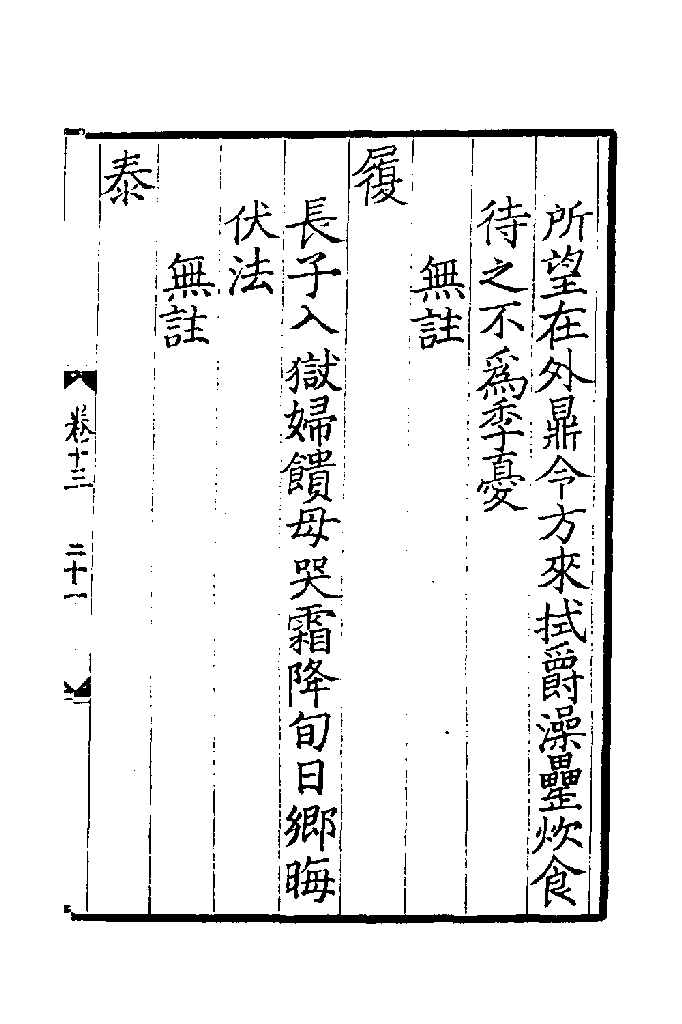 所望在外鼎令方來拭爵澡罍炊食
待之不為季憂
無註
履
長子入獄婦饋母哭霜降旬日鄉晦
伏法
無註
泰
卷十三 二十一